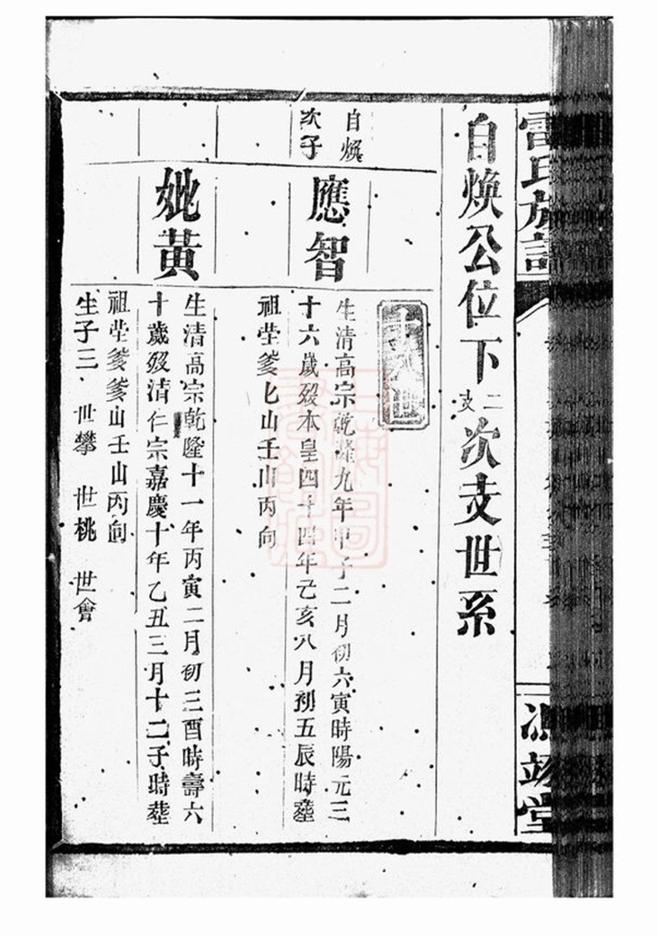 雷氏族譜
馮翊堂
自煥公位下二支次支世系
自煥
次子
應智
生清高宗乾隆九年甲子二月初六寅時陽元三
十六歲歿本皇四十四年己亥八月初五辰時塟
祖塋爹匕山壬山丙向
妣黃
生清高宗乾隆十一年丙寅二月初三酉時壽六
十歲歿清仁宗嘉慶十年乙丑三月十二子時塟
祖塋爹爹山壬山丙向
生子三 世攀 世桃 世會